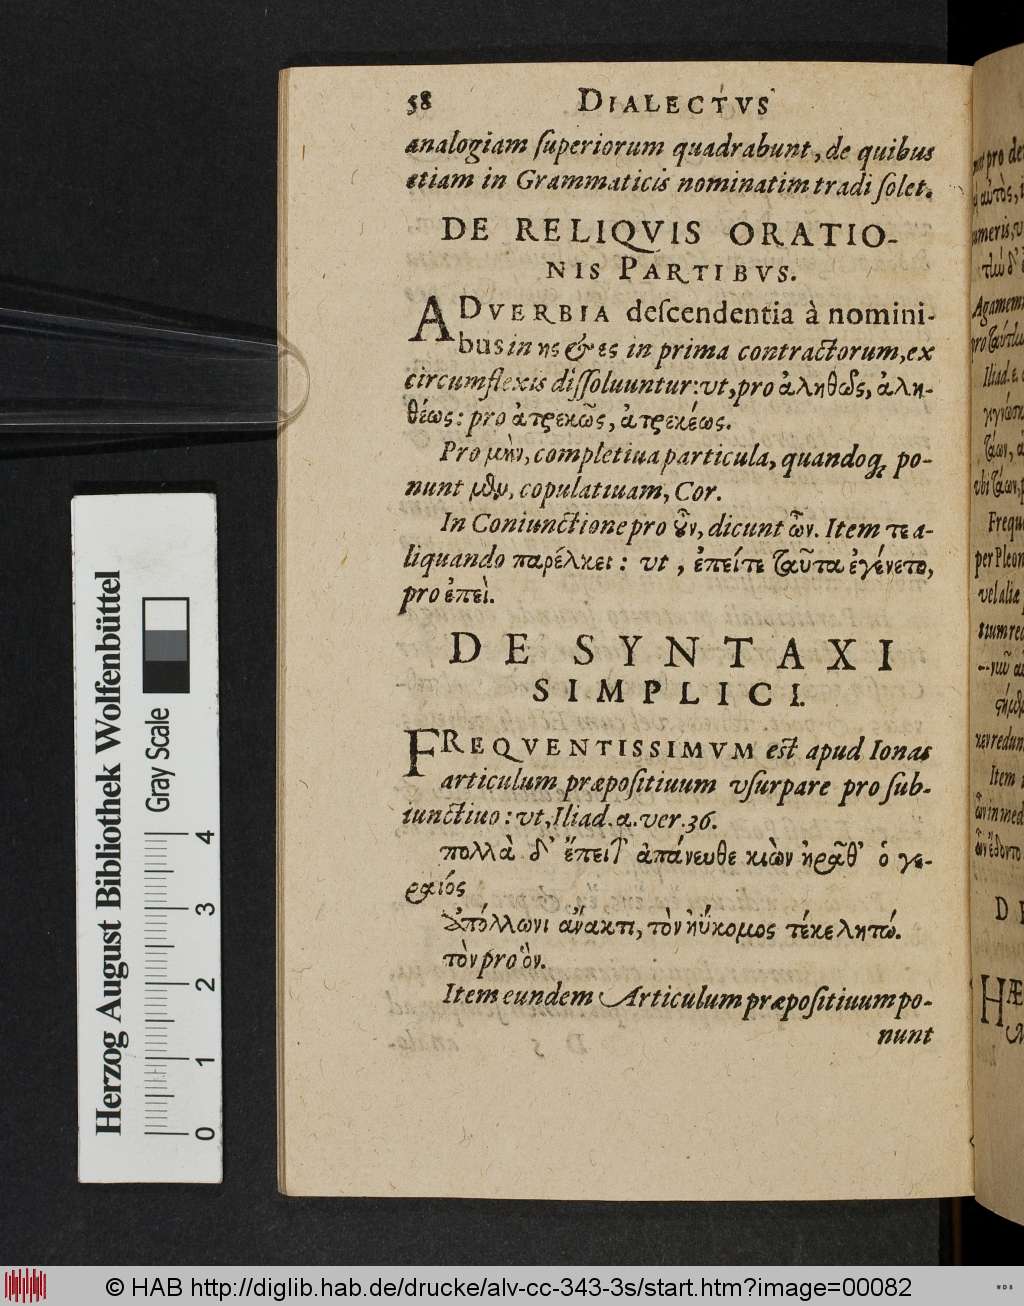 58 DIALECTVS
analogiam ſuperiorum quadrabunt, de quibus
etiam in Grammaticis nominatim tradi ſolet.
DE RELIQVIS ORATIO-
NIS PARTIBVS.
ADVERBIA deſcendentia à nomini-
bus in ης & ες in prima contractorum, ex
circumflexis diſſoluuntur: vt, pro ἀληθῶς, ἀλη-
θέως: pro ἀτρεκῶς, ἀτρεκέως.
Pro μὴν, completiua particula, quandoq; po-
nunt μὲν, copulatiuam, Cor.
In Coniunctione pro οὖν, dicunt ὦν. Item τε a-
liquando παρέλκει: vt, ἐπείτε ταῦτα ἐγένετο,
pro ἐπεὶ.
DE SYNTAXI
SIMPLICI.
FREQVENTISSIMVM est apud Ionas
articulum præpoſitiuum vſurpare pro ſub-
iunctiuo: vt, Iliad. α. ver. 36.
πολλὰ δ' ἔπειτ' ἀπάνευθε κιὼν ἠρᾶθ' ὁ γε-
ραιός
Ἀπόλλωνι ἄνακτι, τὸν ἠΰκομος τέκε λητώ.
τὸν pro ὃν.
Item eundem Articulum præpoſitiuum po-
nunt
Herzog August Bibliothek Wolfenbüttel
Gray Scale
0 1 2 3 4
pro de
αὐτὸς,
umeris, v
Agamem
Iliad. ε.
Frequ
per Pleon
vel aliæ
tium re
κεν redun
Item
ὦν in med
D
HÆ
© HAB http://diglib.hab.de/drucke/alv-cc-343-3s/start.htm?image=00082